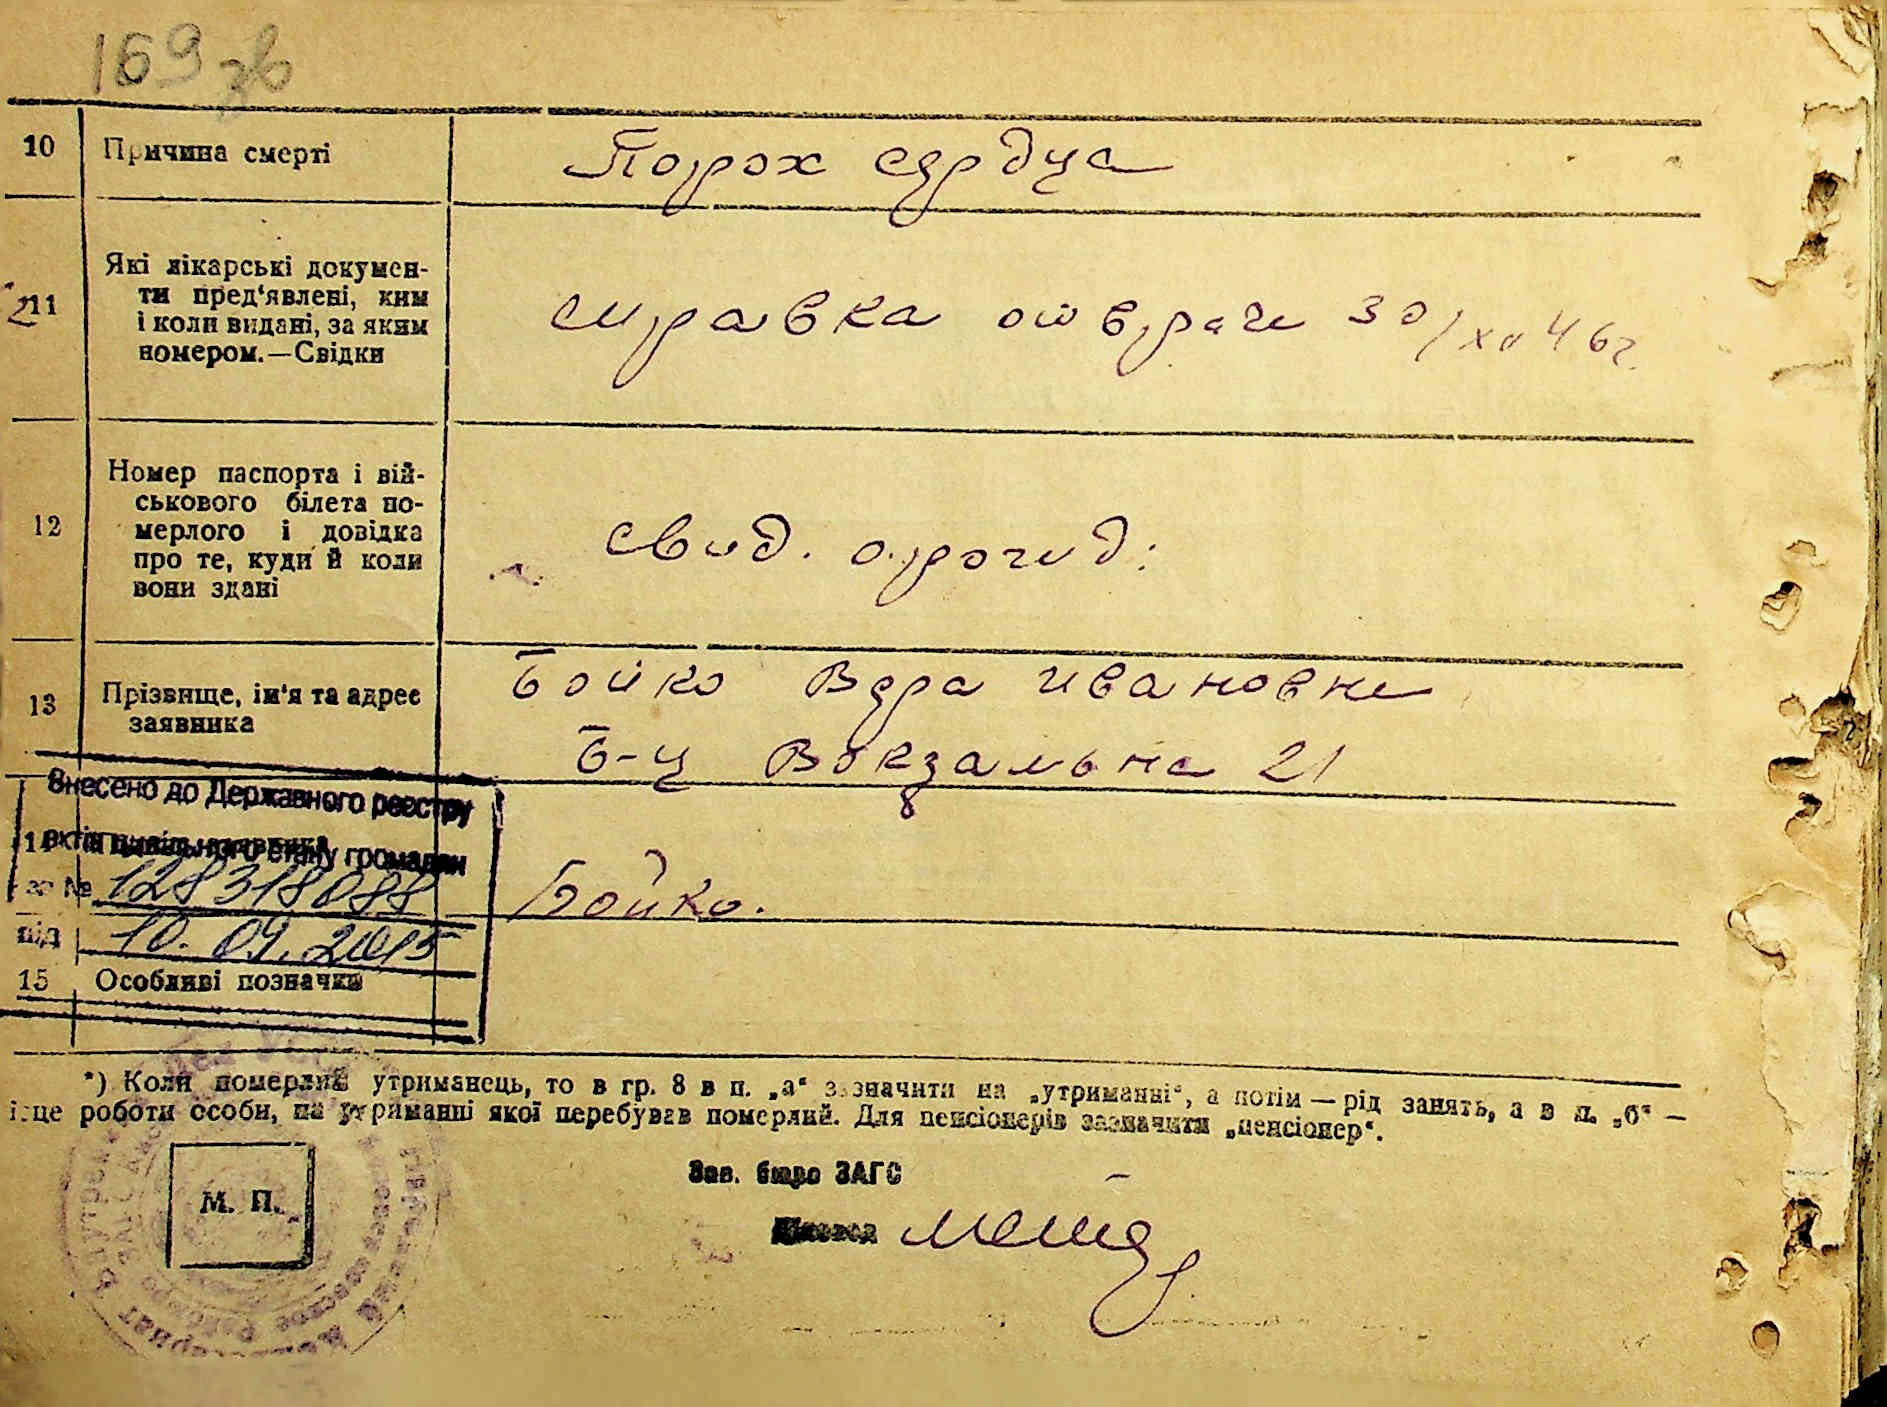 169 зв
10 Причина смерті Порох сердца
11 Які лікарські докумен-
ти пред'явлені, ким
і коли видані, за яким
номером.—Свідки
справка от врача 30/XII 46 г.
12 Номер паспорта і вій-
ськового білета по-
мерлого і довідка
про те, куди й коли
вони здані
свид. о рогид:
13 Прізвище, ім'я та адрес
заявника
Бойко Вера Ивановна
Б-ц Вокзальна 21
8
Внесено до Державного реєстру
актів цивільного стану громадян
за № 128318088
від 10.09.2015
14 заявника Бойко.
15 Особливі позначки
*) Коли померлий утриманець, то в гр. 8 в п. „а“ зазначити на „утриманні“, а потім — рід занять, а в п. „б“ —
ісце роботи особи, на утриманні якої перебував померлий. Для пенсіонерів зазначити „пенсіонер“.
М. П.
Зав. бюро ЗАГС